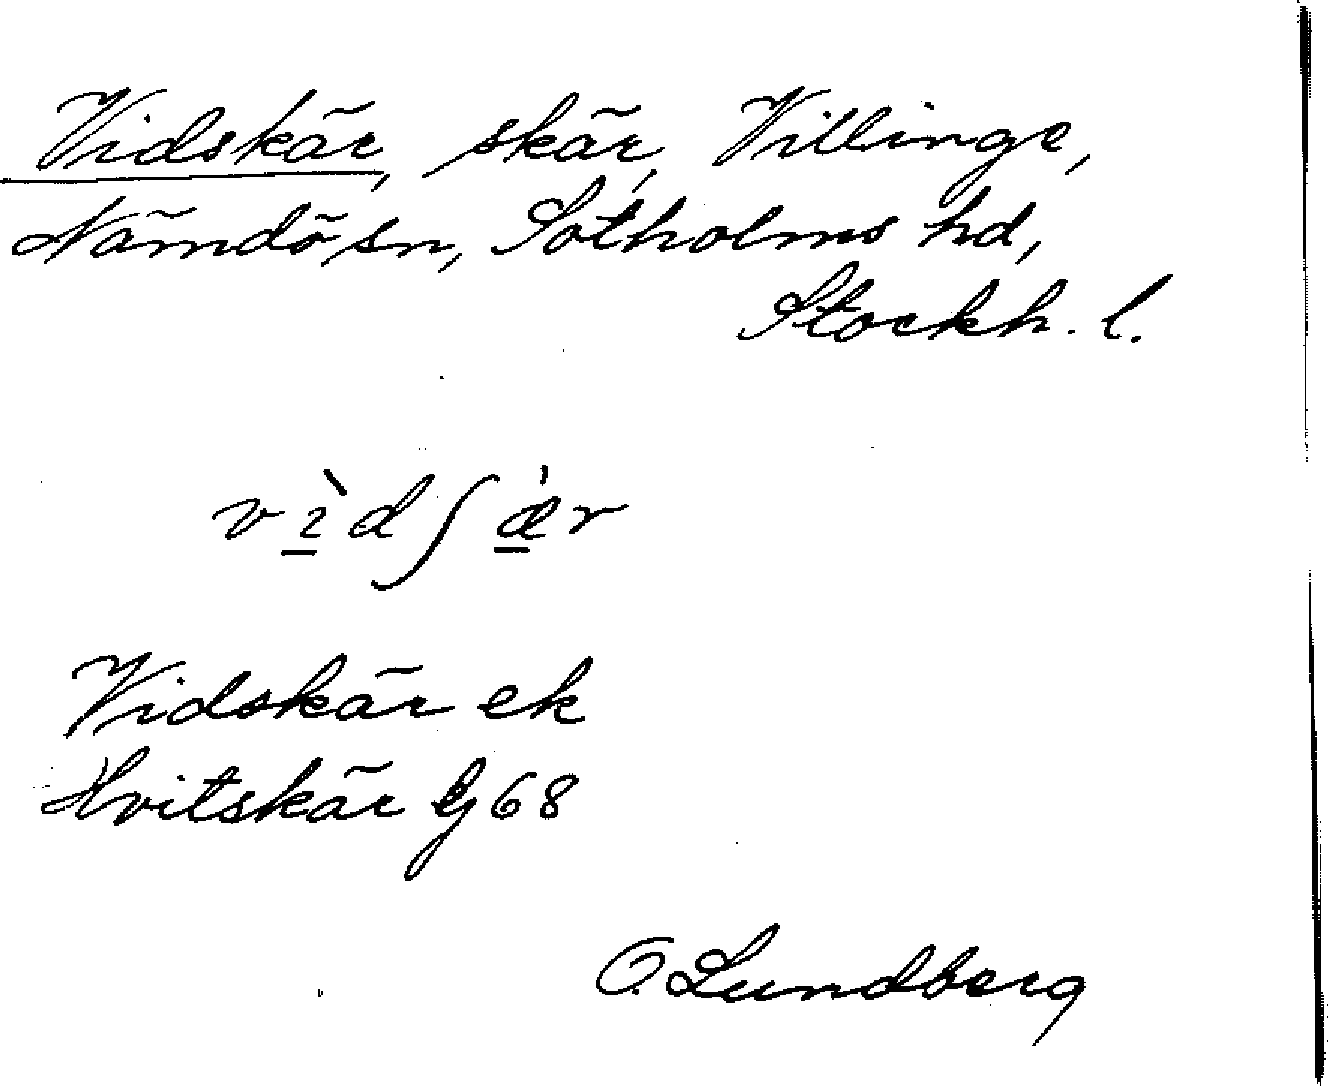 Vidskär, skär, Villinge,
Nämdö sn, Sotholms hd,
Stockh. l.
vìdʃæ̀r
Vidskär ek
Hvitskär Gj 68
O. Lundberg